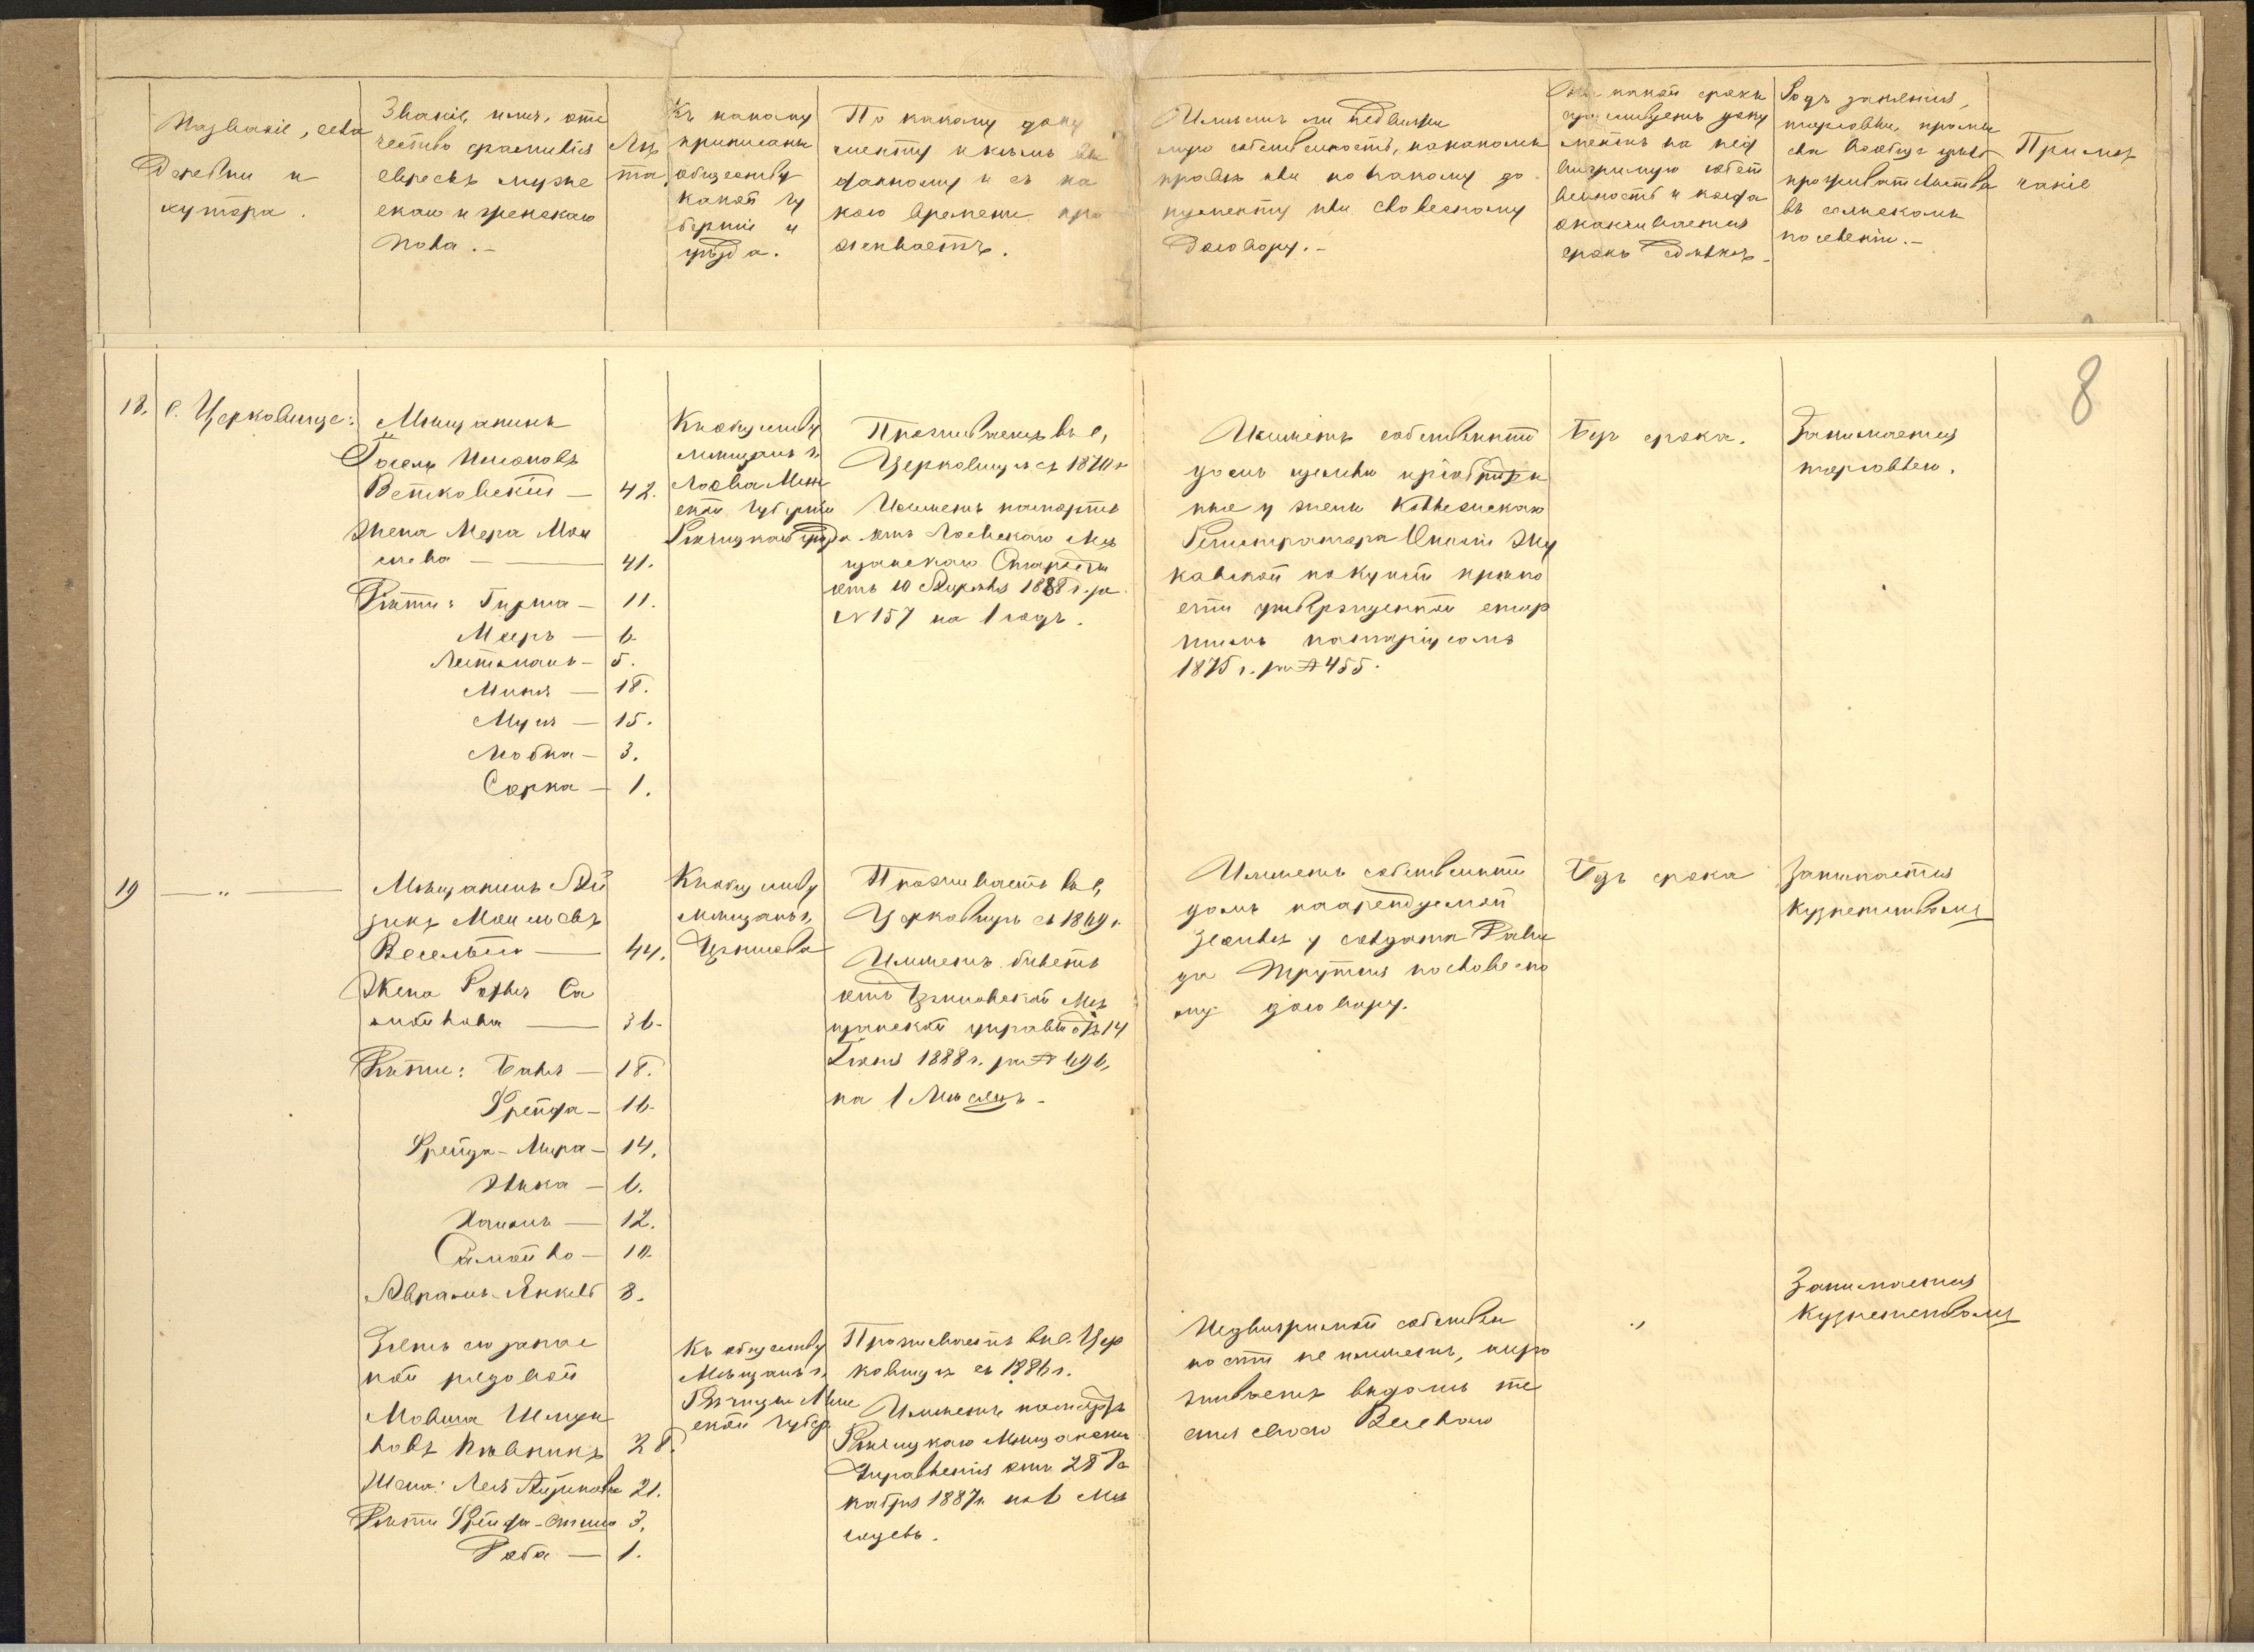 Названіе, села
деревни и
хутора.
Званіе, имя, отче
чество фамилія
евреевъ мужс
скаго и женскаго
пола.-
Лѣ
та
Къ какому
приписанъ
обществу
какой гу
берніи и
уѣзда.
По какому доку
менту и кѣмъ вы
данному и съ ка
кого времени про
живаетъ.
Имѣетъ ли недвижи
мую собственность, на какомъ
правѣ или по какому до
кументу или словесному
договору.-
На какой срокъ
документъ на нед
вижимую собст
венность и когда
оканчивается
срокъ сдѣлкѣ.
Родъ занятія,
торговли, промы
сла вообще цѣль
проживательства
въ сельскомъ
поселеніи.-
Примѣ
чаніе
8
18. с. Церковище:
Мѣщанинъ
Ветковскій — 42.
Жена Мера Мои
сѣева — 41.
Дѣти: Гирша — 11.
Мееръ — 6.
— 5.
Миня — 18.
Муся — 15.
Любка — 3.
Сорка — 1.
Къ обществу
мѣщанъ г.
Лоева Мин
ской губерніи
Рѣчицкаго уѣзда
Проживаетъ въ с.
Церковищѣ съ 1870 г.
Имѣетъ паспортъ
отъ Лоевскаго Мѣ
щанскаго Старосты
отъ 10 Апрѣля 1888 г. за
№ 157 на 1 годъ.
Имѣетъ собственный
домъ землю пріобрѣтен
ные у жены Коллежскаго
Регистратора Жу
ковской покупкой крѣпо
сти утвержденной стар
шимъ нотаріусомъ
1875 г. за № 455.
Безъ срока.
Занимается
торговлею.
19 — " —
Мѣщанинъ Ай
зикъ Моисѣевъ
Веселый — 44.
Жена Рохля Са
мойлова — 36.
Дѣти: Баля — 18.
Фрейда — 16.
Фрейда-Мира — 14.
Элька — 6.
Хаимъ — 12.
Самойло — 10.
Абрамъ-Янкель 8.
Къ обществу
мѣщанъ г.
Проживаетъ въ с.
Церковищѣ съ 1869 г.
Имѣетъ билетъ
отъ Мѣ
щанской управы отъ 14
Іюня 1888 г. за № 696,
на 1 Мѣсяцъ -
Имѣетъ собственный
домъ на арендуемой
землѣ у солдата Дави
да Трутня по словесно
му договору.
Безъ срока
Занимается
кузнечествомъ
Зять его запас
ной рядовой
Мовша Шмуй
ловъ Пѣвникъ 28.
Жена: Лея Айзикова 21.
Дѣти Фрейда- 3.
Роба — 1.
Къ обществу
Мѣщанъ г.
Рѣчицы Мин
ской губер.
Проживаетъ въ с. Цер
ковищѣ съ 1886 г.
Имѣетъ паспортъ
Рѣчицкаго Мѣщанска
Управленія отъ 28 Де
кабря 1887 г. на 6 Мѣ
сяцевъ.
Недвижимой собствен
ности не имѣетъ, а про
живаетъ въ домѣ те
стя своего Веселаго
"
Занимается
кузнечествомъ